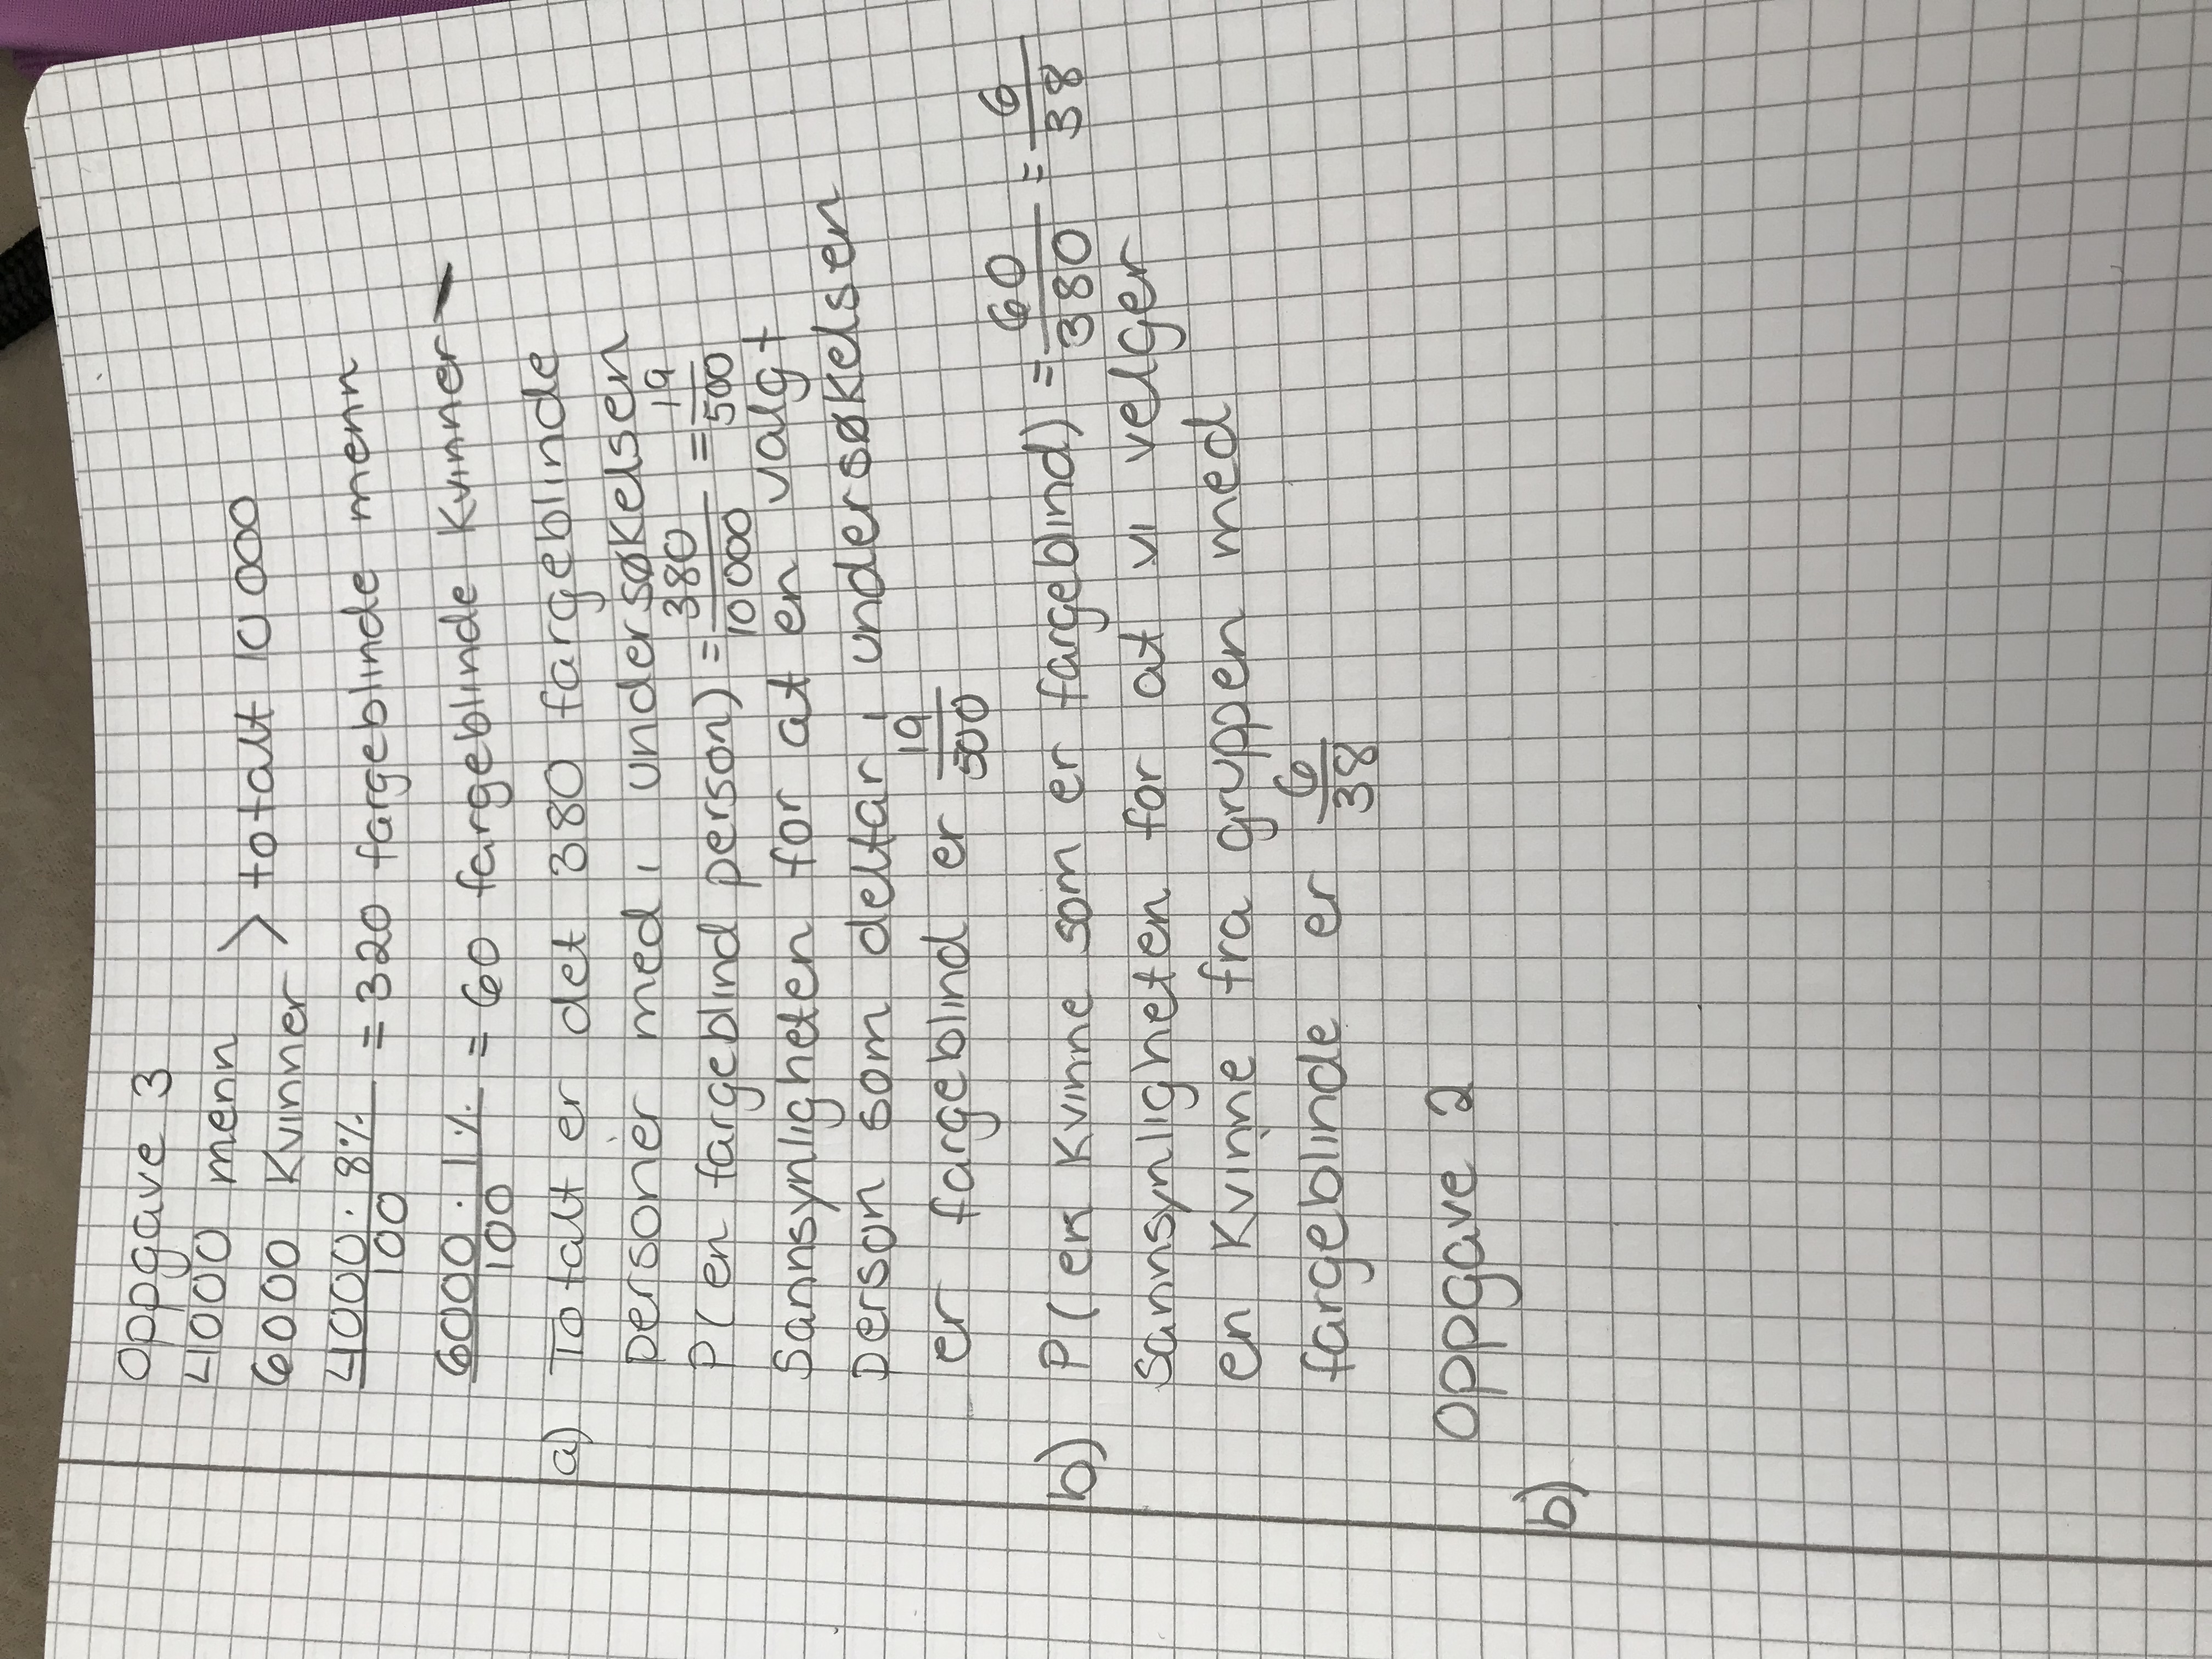 Oppgave 3
4000 menn
6000 Kvinner > totalt 10 000
4000 · 8% / 100 = 320 fargeblinde menn
6000 · 1% / 100 = 60 fargeblinde Kvinner
a) Totalt er det 380 fargeblinde
personer med i undersøkelsen
P(en fargeblind person) = 380/10000 = 19/500
Sannsynligheten for at en valgt
person som deltar i undersøkelsen
er fargeblind er 19/500
b) P(en Kvinne som er fargeblind) = 60/380 = 6/38
Sannsynligheten for at vi velger
en Kvinne fra gruppen med
fargeblinde er 6/38
Oppgave 2
b)